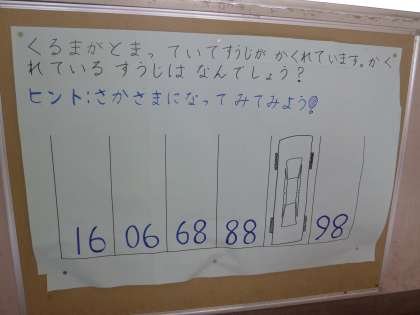 くるまがとまっていてすうじが かくれています。かく
れている すうじは なんでしょう?
ヒント:さかさまになってみてみよう!
16 06 68 88 98